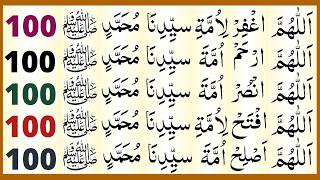 اَللّٰهُمَّ اغْفِرْ لِاُمَّةِ سَيِّدِنَا مُحَمَّدٍ ﷺ 100
اَللّٰهُمَّ ارْحَمْ اُمَّةَ سَيِّدِنَا مُحَمَّدٍ ﷺ 100
اَللّٰهُمَّ انْصُرْ اُمَّةَ سَيِّدِنَا مُحَمَّدٍ ﷺ 100
اَللّٰهُمَّ افْتَحْ لِاُمَّةِ سَيِّدِنَا مُحَمَّدٍ ﷺ 100
اَللّٰهُمَّ اَصْلِحْ اُمَّةَ سَيِّدِنَا مُحَمَّدٍ ﷺ 100